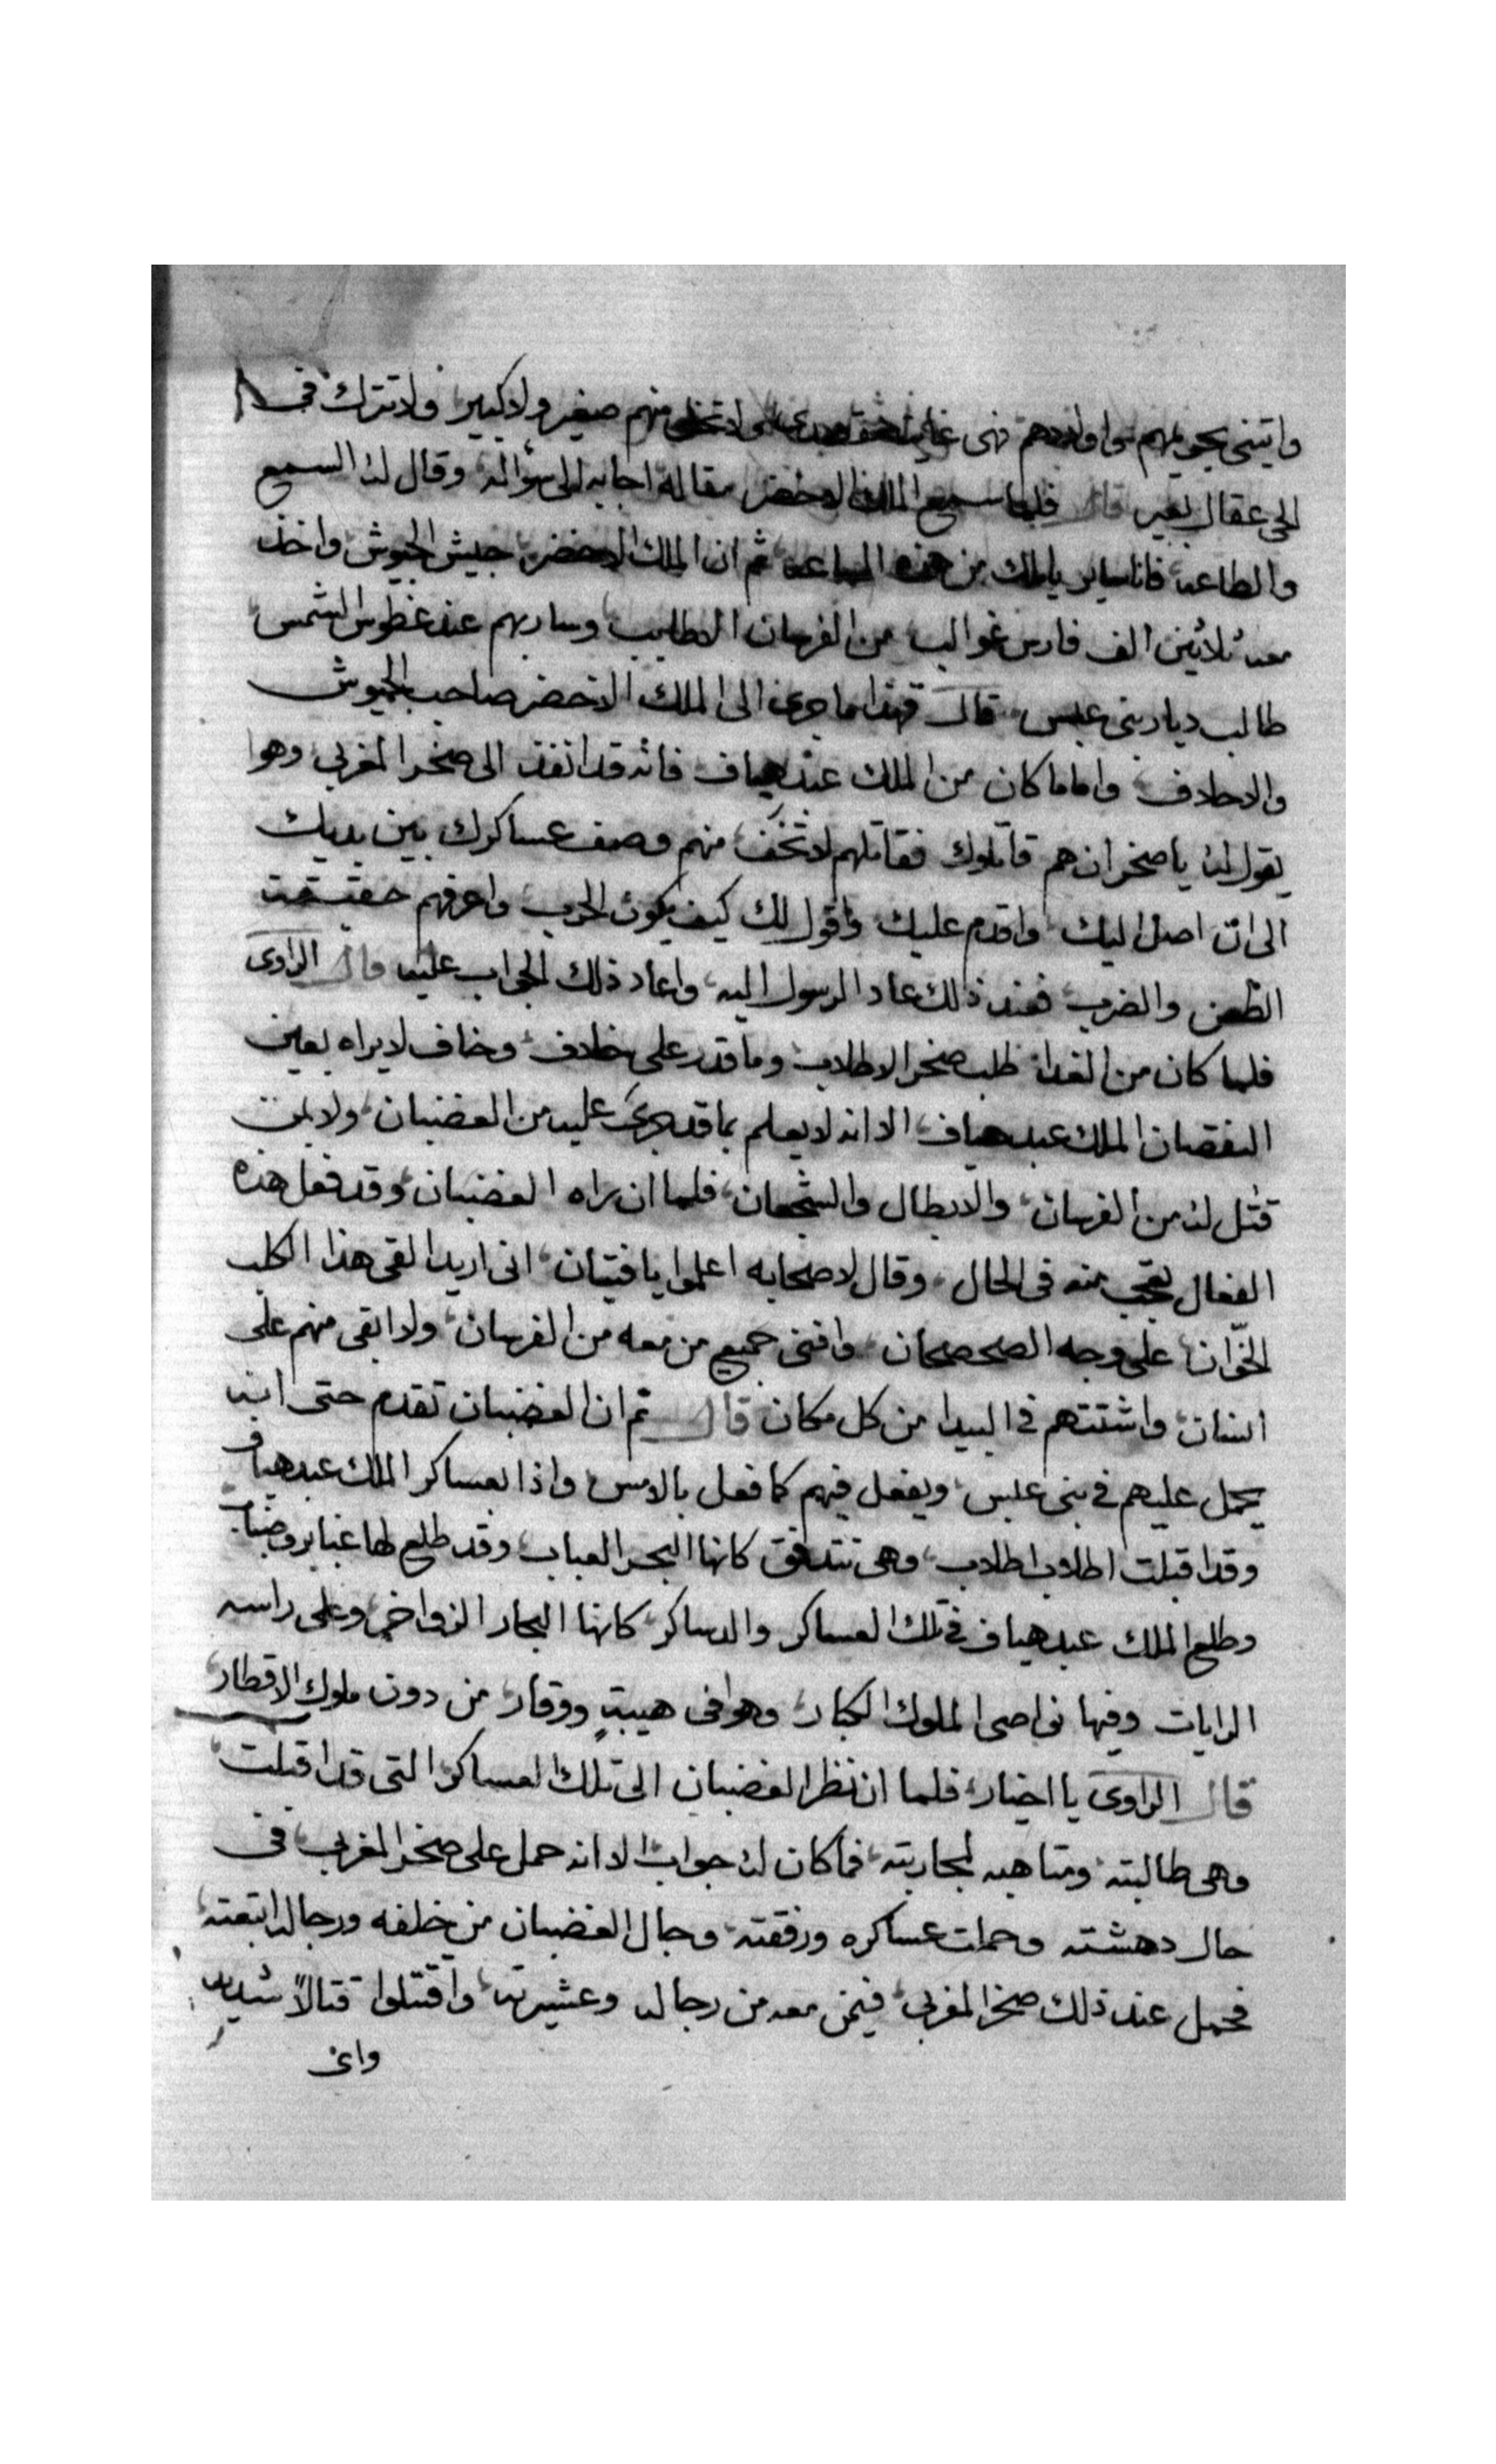 واتينى بحريمهم واولادهم فهى غاية ولا تخلى منهم صغير ولا كبير ولا تترك فى
الحى عقال بعير قال فلما سمع الملك الاخضر مقاله اجابه الى سؤاله وقال له السمع
والطاعه فانا ساير ياملك من هذه الساعه ثم ان الملك الاخضر جيش الجيوش واخذ
معه ثلاثين الف فارس غوالب من الفرسان وسار بهم عند غطوس الشمس
طالب ديار بنى عبس قال فهذا ما جرى الى الملك الاخضر صاحب الجيوش
والاحلاف واما ما كان من الملك عبد هياف فانه قد انفذ الى صخر المغربى وهوا
يقول له ياصخر ان هم قاتلوك فقاتلهم لا تخف منهم وصف عساكرك بين يديك
الى ان اصل اليك واقدم عليك واقول لك كيف يكون الحرب واعرفهم حقيقة
الطعن والضرب فعند ذلك عاد الرسول اليه واعاد ذلك الجواب عليه قال الراوى
فلما كان من الغداه طلب صخر الاطلاب وما قدر على خلاف وخاف لا يراه بعين
النقصان الملك عبد هياف الا انه لا يعلم بما قد جرى عليه من الغضبان ولا بمن
قتل له من الفرسان والابطال والشجعان فلما ان راه الغضبان وقد فعل هذه
الفعال تعجب منه فى الحال وقال لاصحابه اعلموا يا فتيان انى اريد القى هذا الكلب
الخوّان على وجه الصحصحان وافنى جميع من معه من الفرسان ولا ابقى منهم على
انسان واشتتهم فى البيدا من كل مكان قال ثم ان الغضبان تقدم حتى انه
يحمل عليهم فى بنى عبس ويفعل فيهم كما فعل بالامس واذا بعساكر الملك عبد هياف
وقد اقبلت اطلاب اطلاب وهى تتدفق كانها البحر العباب وقد طلع لها غبابر وضباب
وطلع الملك عبد هياف فى تلك العساكر والدساكر كانها البحار الزواخر وعلى راسه
الرايات وفيها نواصى الملوك الكبار وهوا فى هيبةٍ ووقار من دون ملوك الاقطار
قال الراوى يا اخيار فلما ان نظر الغضبان الى تلك العساكر التى قد اقبلت
وهى طالبته ومتاهبه لمحاربته فما كان له جواب الا انه حمل على صخر المغربى فى
حال دهشته وحملت عساكره ورفقته وجال الغضبان من خلفه ورجاله اتبعته
فحمل عند ذلك صخر المغربى فيمن معه من رجاله وعشيرته واقتتلوا قتالاً شديد